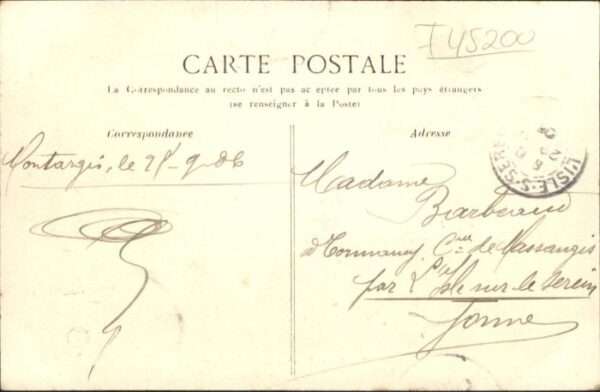 T 45200
CARTE POSTALE
La Correspondance au recto n'est pas acceptée par tous les pays étrangers
(se renseigner à la Poste)
Correspondance
Adresse
Montargis, le
Madame
Barbeaud
Cne de Massangis
par L'Isle sur le Serein
Yonne
L'ISLE-S-SEREIN